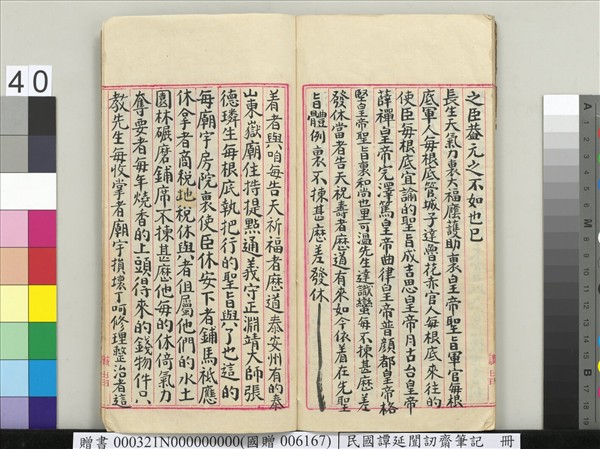 之臣益元之不如也已
長生天氣力裏大福廕護助裏皇帝聖旨軍官每根
底軍人每根底管城子達魯花赤官人每根底來往的
使臣每根底宣諭的聖旨成吉思皇帝月古台皇帝
薛禪皇帝完澤篤皇帝曲律皇帝普顏都皇帝格
堅皇帝聖旨裏和尚也里可溫先生達識蠻每不揀甚麽差
發休當者告天祝壽者麽道有來如今依着在先聖
旨體例裏不揀甚麽差發休
着者與咱每告天祈福者麽道泰安州有的泰
山東嶽廟住持提點通義守正淵靖大師張
德璘生每根底執把行的聖旨與了也這的
每廟宇房院裏使臣休安下者鋪馬祗應
休拿者商稅地稅休與者但屬他們的水土
園林碾磨鋪席不揀甚麽他每的休倚氣力
奪要者每年燒香的上頭得來的錢物件只
教先生每收掌者廟宇損壞了呵修理整治者這
40
贈書 000321N000000000(國贈 006167) 民國譚延闓訒齋筆記 冊